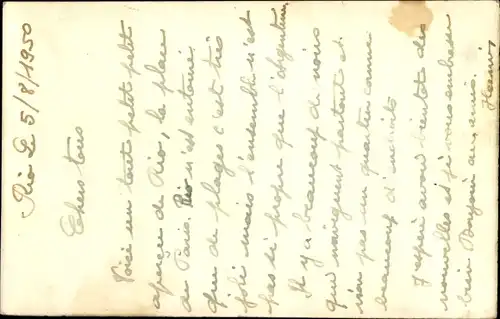 Rio Le 5/8/1950
Chers tous
Voici un tout petit petit
aperçu de Rio, la place
de Paris. Rio n'est entouré
que de plages c'est très
joli mais l'ensemble n'est
pas si propre que l'Argentine.
Il y a beaucoup de noirs
qui naviguent partout et
non pas un quartier comme
beaucoup d'endroits
J'espère avoir bientôt des
nouvelles et je vous embrasse
bien. Bonjour aux amis.